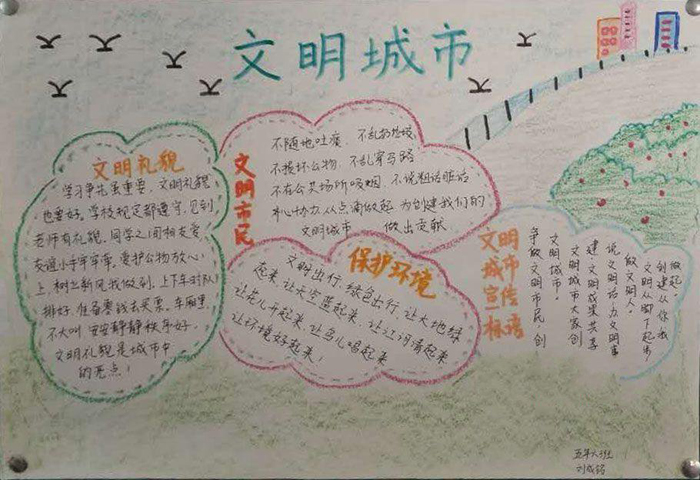 文明城市
文明礼貌
学习争先虽重要，文明礼貌
也要好。学校规定都遵守，见到
老师有礼貌。同学之间相友爱，
友谊小手牢牢牵。爱护公物放心
上，树立新风我做到。上下车时队
排好，准备零钱去买票。车厢里
不大叫，安安静静秩序好，
文明礼貌是城市中
的亮点！
文明市民
不随地吐痰、不乱扔垃圾
不损坏公物、不乱穿马路
不在公共场所吸烟、不说粗话脏话
齐心协力从点滴做起 为创建我们的
文明城市 做出贡献
保护环境
文明出行，绿色出行，让大地绿
起来，让天空蓝起来，让江河清起来
让花儿开起来，让鸟儿唱起来
让环境好起来！
文明
城市
宣传
标语
做起
创建从你我
文明从脚下起步
做文明人！
说文明话 办文明事
建文明成果共享
文明城市大家创
文明城市！
争做文明市民 创
五年六班
刘成铭